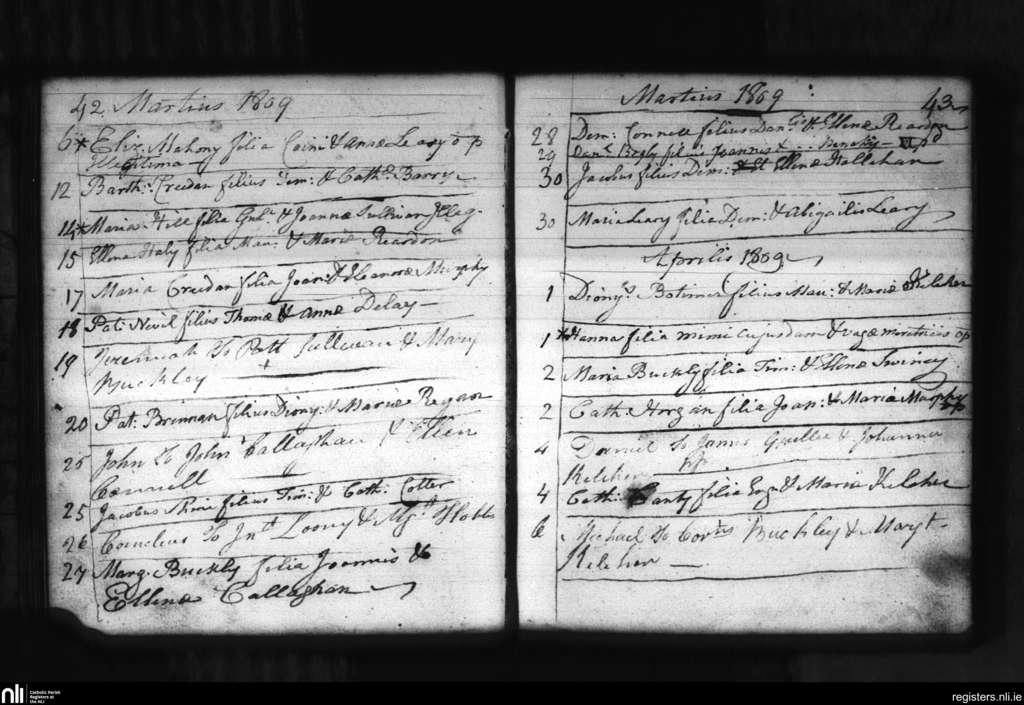 42 Martius 1809
6 * Eliz: Mahony filia Corn: & Annæ Leary o p
Illegitima
12 Barth: Creedan filius Tim: & Cath: Barry
14 * Maria Hill filia Gul: & Joannæ Sullivan Illeg.
15 Ellena Haly filia Mau: & Mariæ Reardon
17 Maria Creedan filia Joan: & Eleanoræ Murphy
18 Pat: Nevil filius Thomæ & Annæ Delay
19 Jeremiah To Patt Sullivan & Mary
Buckley
20 Pat: Brennan filius Diony: & Mariæ Regan
25 John To John Callaghan & Ellen
Connell
25 Jacobus filius Tim: & Cath: Cotter
26 Cornelius To Jno Loony & Mgt Hobbs
27 Marg: Buckly filia Joannis &
Ellenæ Callaghan
Martius 1809 43
28 Dem: Connell filius Danlis & Ellenæ Reardon
29 Danl: Begly fil: Joannis & p
30 Jacobus filius Dem: Et Ellenæ Hallehan
30 Maria Leary filia Dem: & Abigailis Leary
Aprilis 1809
1 Dionys filius Mau: & Mariæ Kelcher
1 * Hanna filia mimi cujusdam & vagæ meretricis op
2 Maria Buckly filia Tim: & Ellenæ Swiney
2 Cath: Horgan filia Joan: & Mariæ Murphy
4 Daniel To James & Johanna
Kelcher pp
4 Cath: Canty filia & Maria Kelcher
6 Michael To Corns Buckley & Mary
Kelcher
nli Catholic Parish
Registers at
the NLI
registers.nli.ie